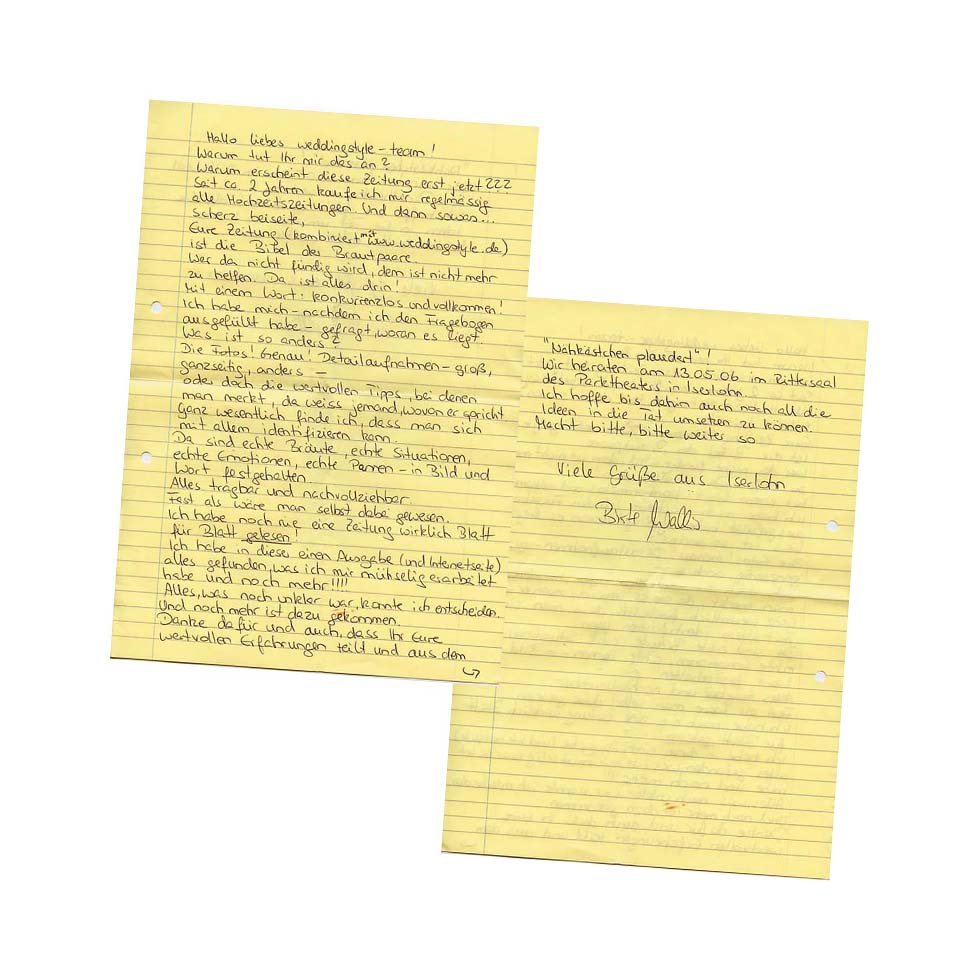 Hallo liebes weddingstyle-team!
Warum tut Ihr mir das an?
Warum erscheint diese Zeitung erst jetzt???
Seit ca. 2 Jahren kaufe ich mir regelmässig
alle Hochzeitszeitungen. Und dann sowas...
Scherz beiseite,
Eure Zeitung (kombiniert mit www.weddingstyle.de)
ist die Bibel der Brautpaare.
Wer da nicht fündig wird, dem ist nicht mehr
zu helfen. Da ist alles drin!
Mit einem Wort: konkurrenzlos und vollkommen!
Ich habe mich - nachdem ich den Fragebogen
ausgefüllt habe - gefragt, woran es liegt.
Was ist so anders?
Die Fotos! Genau! Detailaufnahmen - groß,
ganzseitig, anders -
oder doch die wertvollen Tipps, bei denen
man merkt, da weiss jemand, wovon er spricht
Ganz wesentlich finde ich, dass man sich
mit allem identifizieren kann.
Da sind echte Bräute, echte Situationen,
echte Emotionen, echte Pannen - in Bild und
Wort festgehalten.
Alles tragbar und nachvollziehbar.
Fast als wäre man selbst dabei gewesen.
Ich habe noch nie eine Zeitung wirklich Blatt
für Blatt gelesen!
Ich habe in dieser einen Ausgabe (und Internetseite)
alles gefunden, was ich mir mühselig erarbeitet
habe und noch mehr!!!!
Alles, was noch unklar war, konnte ich entscheiden.
Und noch mehr ist dazu gekommen.
Danke dafür und auch, dass Ihr Eure
wertvollen Erfahrungen teilt und aus dem
"Nähkästchen plaudert"!
Wir heiraten am 13.05.06 im Rittersaal
des Parktheaters in Iserlohn.
Ich hoffe bis dahin auch noch all die
Ideen in die Tat umsetzen zu können.
Macht bitte, bitte weiter so.
Viele Grüße aus Iserlohn